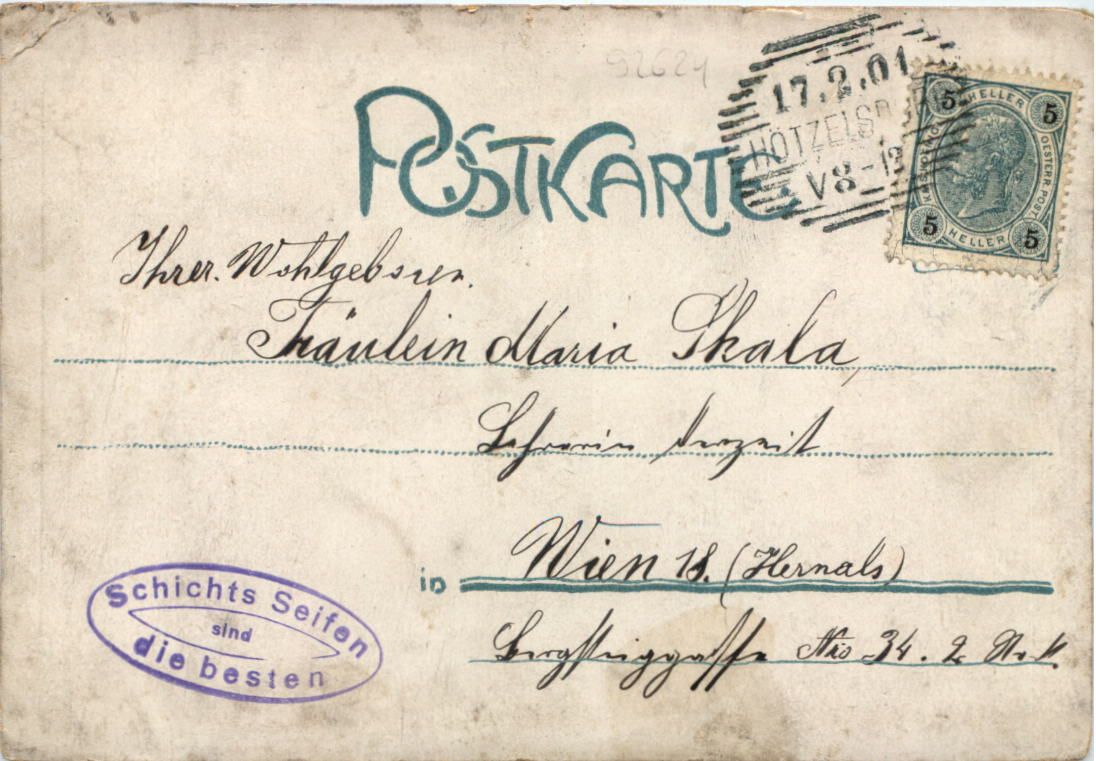 92624
17.2.01
HÖTZELSD
V8-12
5 HELLER 5
OESTERR.POST
5 HELLER 5
POSTKARTE
Ihrer. Wohlgeboren.
Fräulein Maria Skala,
Lehrerin derzeit
in Wien 18. (Hernals)
Bergsteiggasse Nro 34. 2. Stock.
Schichts Seifen
sind
die besten